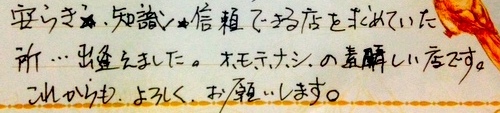 安らぎ、知識、信頼できる店を求めていた
所…出逢えました。オ.モ.テ.ナ.シ.の素晴しい店です。
これからも、よろしく、お願いします。